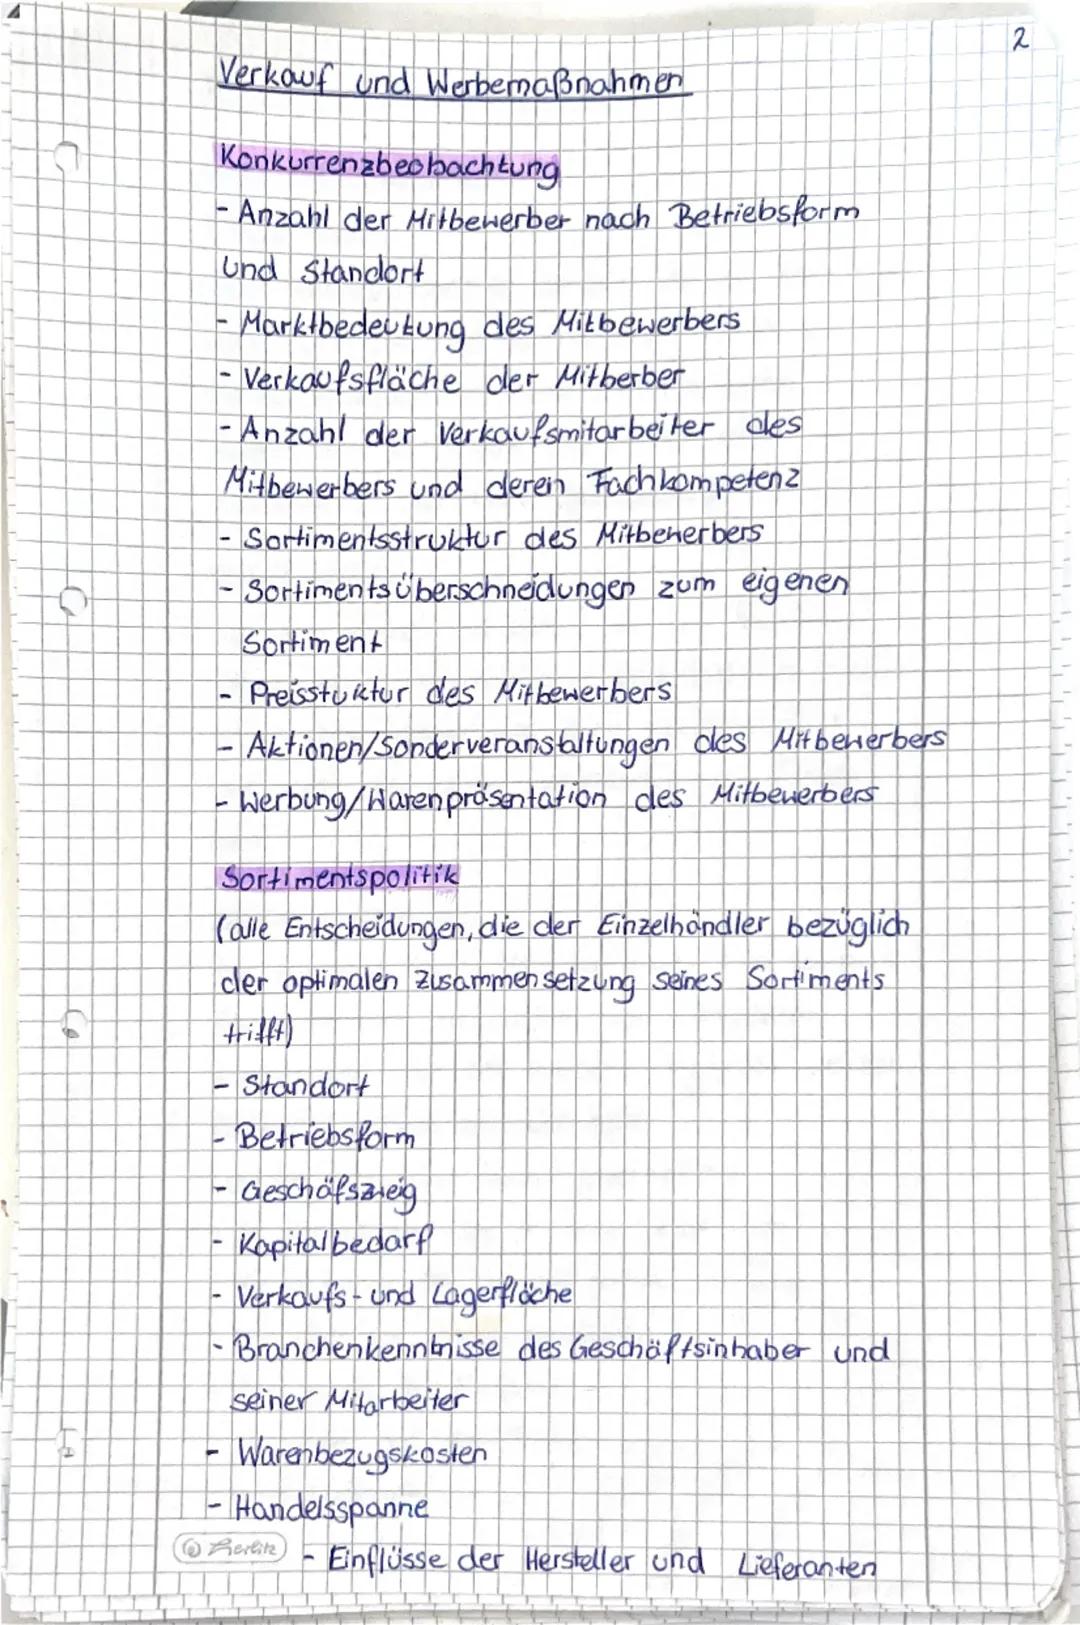 2
Verkauf und Werbemaßnahmen
Konkurrenzbeobachtung
- Anzahl der Mitbewerber nach Betriebsform
und Standort
- Marktbedeutung des Mitbewerbers
- Verkaufsfläche der Mitberber
- Anzahl der Verkaufsmitarbeiter des
Mitbewerbers und deren Fachkompetenz
- Sortimentsstruktur des Mitbewerbers
- Sortimentsüberschneidungen zum eigenen
Sortiment
- Preisstuktur des Mitbewerbers
- Aktionen/Sonderveranstaltungen des Mitbewerbers
- Werbung/Warenpräsentation des Mitbewerbers
Sortimentspolitik
(alle Entscheidungen, die der Einzelhändler bezüglich
der optimalen Zusammensetzung seines Sortiments
trifft)
- Standort
- Betriebsform
- Geschäfszweig
- Kapitalbedarf
- Verkaufs- und Lagerfläche
- Branchenkenntnisse des Geschäftsinhaber und
seiner Mitarbeiter
- Warenbezugskosten
- Handelsspanne
Herlitz
- Einflüsse der Hersteller und Lieferanten